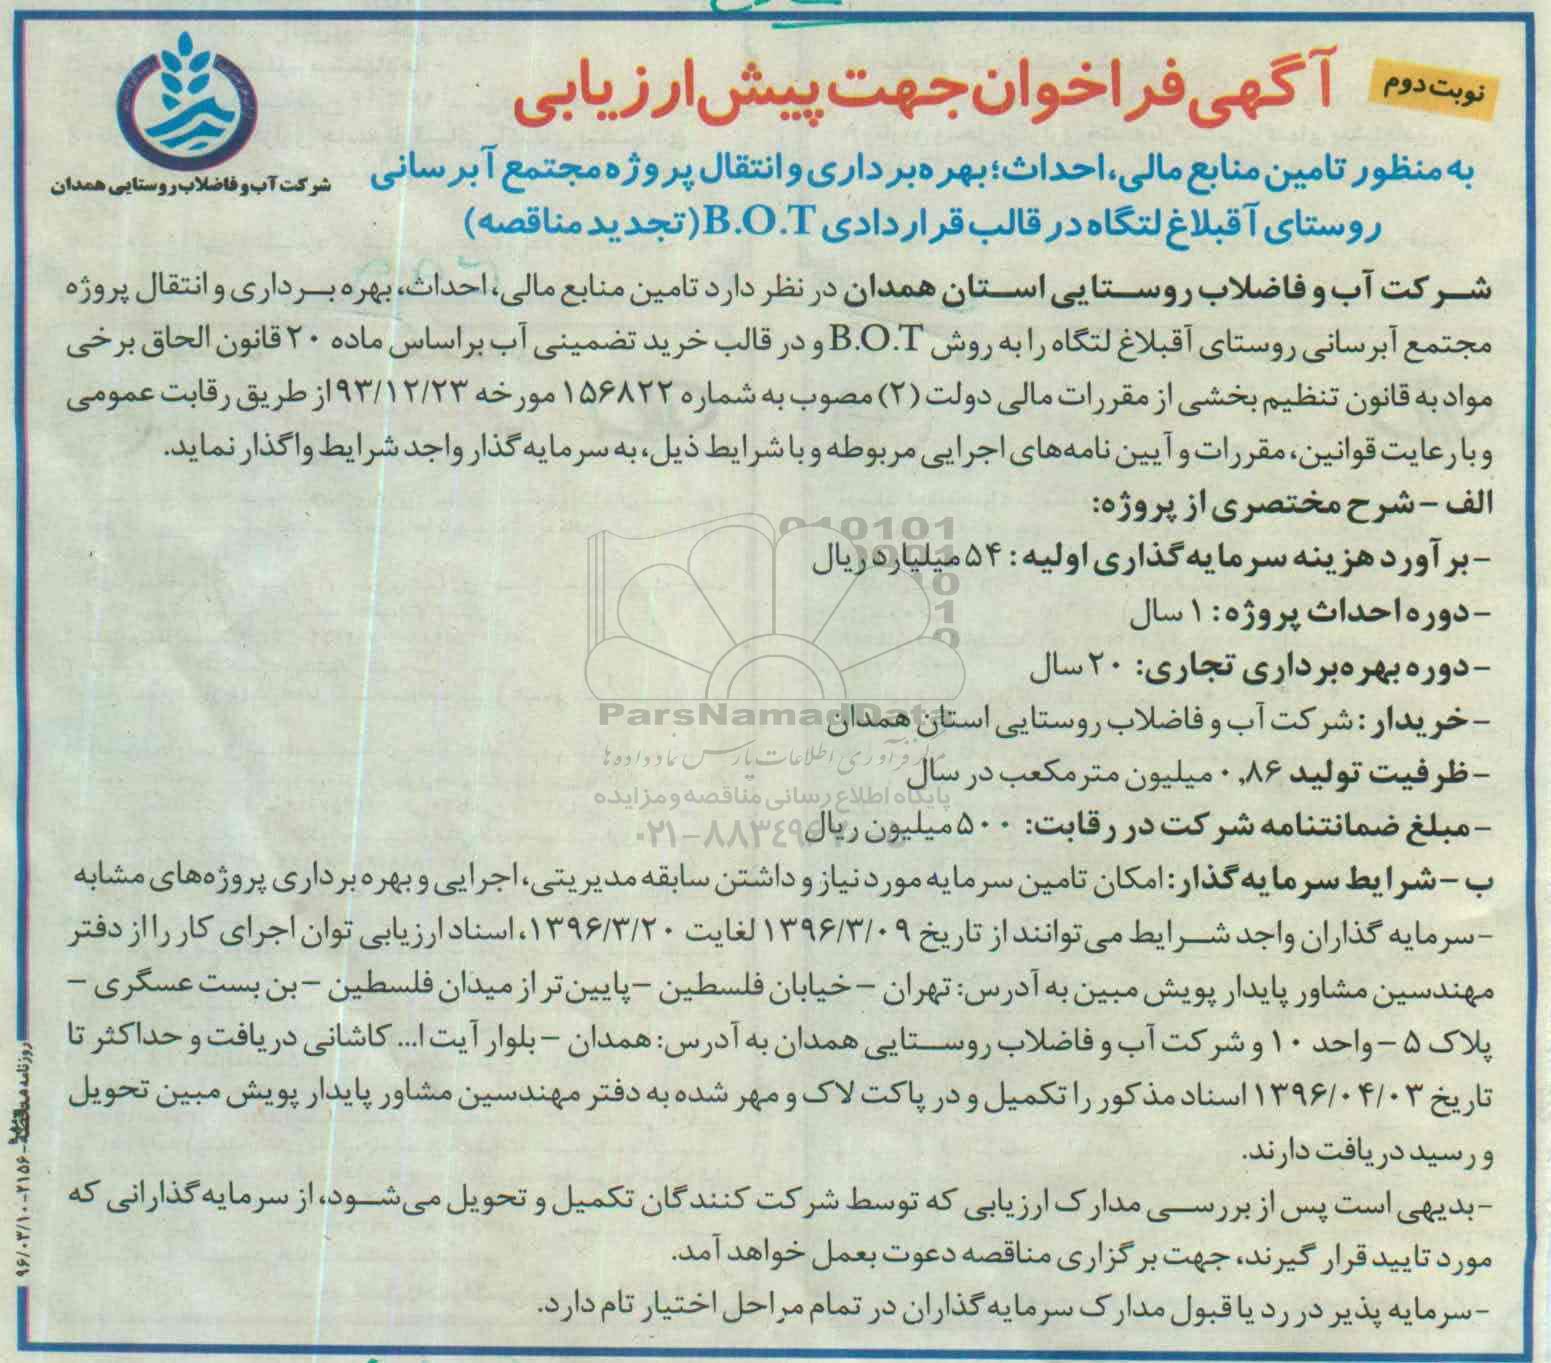 نوبت دوم
آگهی فراخوان جهت پیش ارزیابی
شرکت آب و فاضلاب روستایی همدان
به منظور تامین منابع مالی، احداث؛ بهره‌برداری و انتقال پروژه مجتمع آبرسانی
روستای آقبلاغ لتگاه در قالب قراردادی B.O.T (تجدید مناقصه)
شرکت آب و فاضلاب روستایی استان همدان در نظر دارد تامین منابع مالی، احداث، بهره برداری و انتقال پروژه
مجتمع آبرسانی روستای آقبلاغ لتگاه را به روش B.O.T و در قالب خرید تضمینی آب براساس ماده ۲۰ قانون الحاق برخی
مواد به قانون تنظیم بخشی از مقررات مالی دولت (۲) مصوب به شماره ۱۵۶۸۲۲ مورخه ۹۳/۱۲/۲۳ از طریق رقابت عمومی
و با رعایت قوانین، مقررات و آیین نامه‌های اجرایی مربوطه و با شرایط ذیل، به سرمایه گذار واجد شرایط واگذار نماید.
الف – شرح مختصری از پروژه:
– برآورد هزینه سرمایه گذاری اولیه: ۵۴ میلیارد ریال
– دوره احداث پروژه: ۱ سال
– دوره بهره‌برداری تجاری: ۲۰ سال
– خریدار: شرکت آب و فاضلاب روستایی استان همدان
– ظرفیت تولید ۰,۸۶ میلیون مترمکعب در سال
– مبلغ ضمانتنامه شرکت در رقابت: ۵۰۰ میلیون ریال
ب – شرایط سرمایه گذار: امکان تامین سرمایه مورد نیاز و داشتن سابقه مدیریتی، اجرایی و بهره برداری پروژه‌های مشابه
– سرمایه گذاران واجد شرایط می‌توانند از تاریخ ۱۳۹۶/۳/۰۹ لغایت ۱۳۹۶/۳/۲۰، اسناد ارزیابی توان اجرای کار را از دفتر
مهندسین مشاور پایدار پویش مبین به آدرس: تهران – خیابان فلسطین – پایین‌تر از میدان فلسطین – بن بست عسگری –
پلاک ۵ – واحد ۱۰ و شرکت آب و فاضلاب روستایی همدان به آدرس: همدان – بلوار آیت ا... کاشانی دریافت و حداکثر تا
تاریخ ۱۳۹۶/۰۴/۰۳ اسناد مذکور را تکمیل و در پاکت لاک و مهر شده به دفتر مهندسین مشاور پایدار پویش مبین تحویل
و رسید دریافت دارند.
– بدیهی است پس از بررسی مدارک ارزیابی که توسط شرکت کنندگان تکمیل و تحویل می‌شود، از سرمایه گذارانی که
مورد تایید قرار گیرند، جهت برگزاری مناقصه دعوت بعمل خواهد آمد.
– سرمایه پذیر در رد یا قبول مدارک سرمایه گذاران در تمام مراحل اختیار تام دارد.
ParsNamadData
مرکز فرآوری اطلاعات پارس نماد داده ها
پایگاه اطلاع رسانی مناقصه و مزایده
روزنامه مناقصه – ۲۱۵۶ – ۹۶/۰۳/۱۰